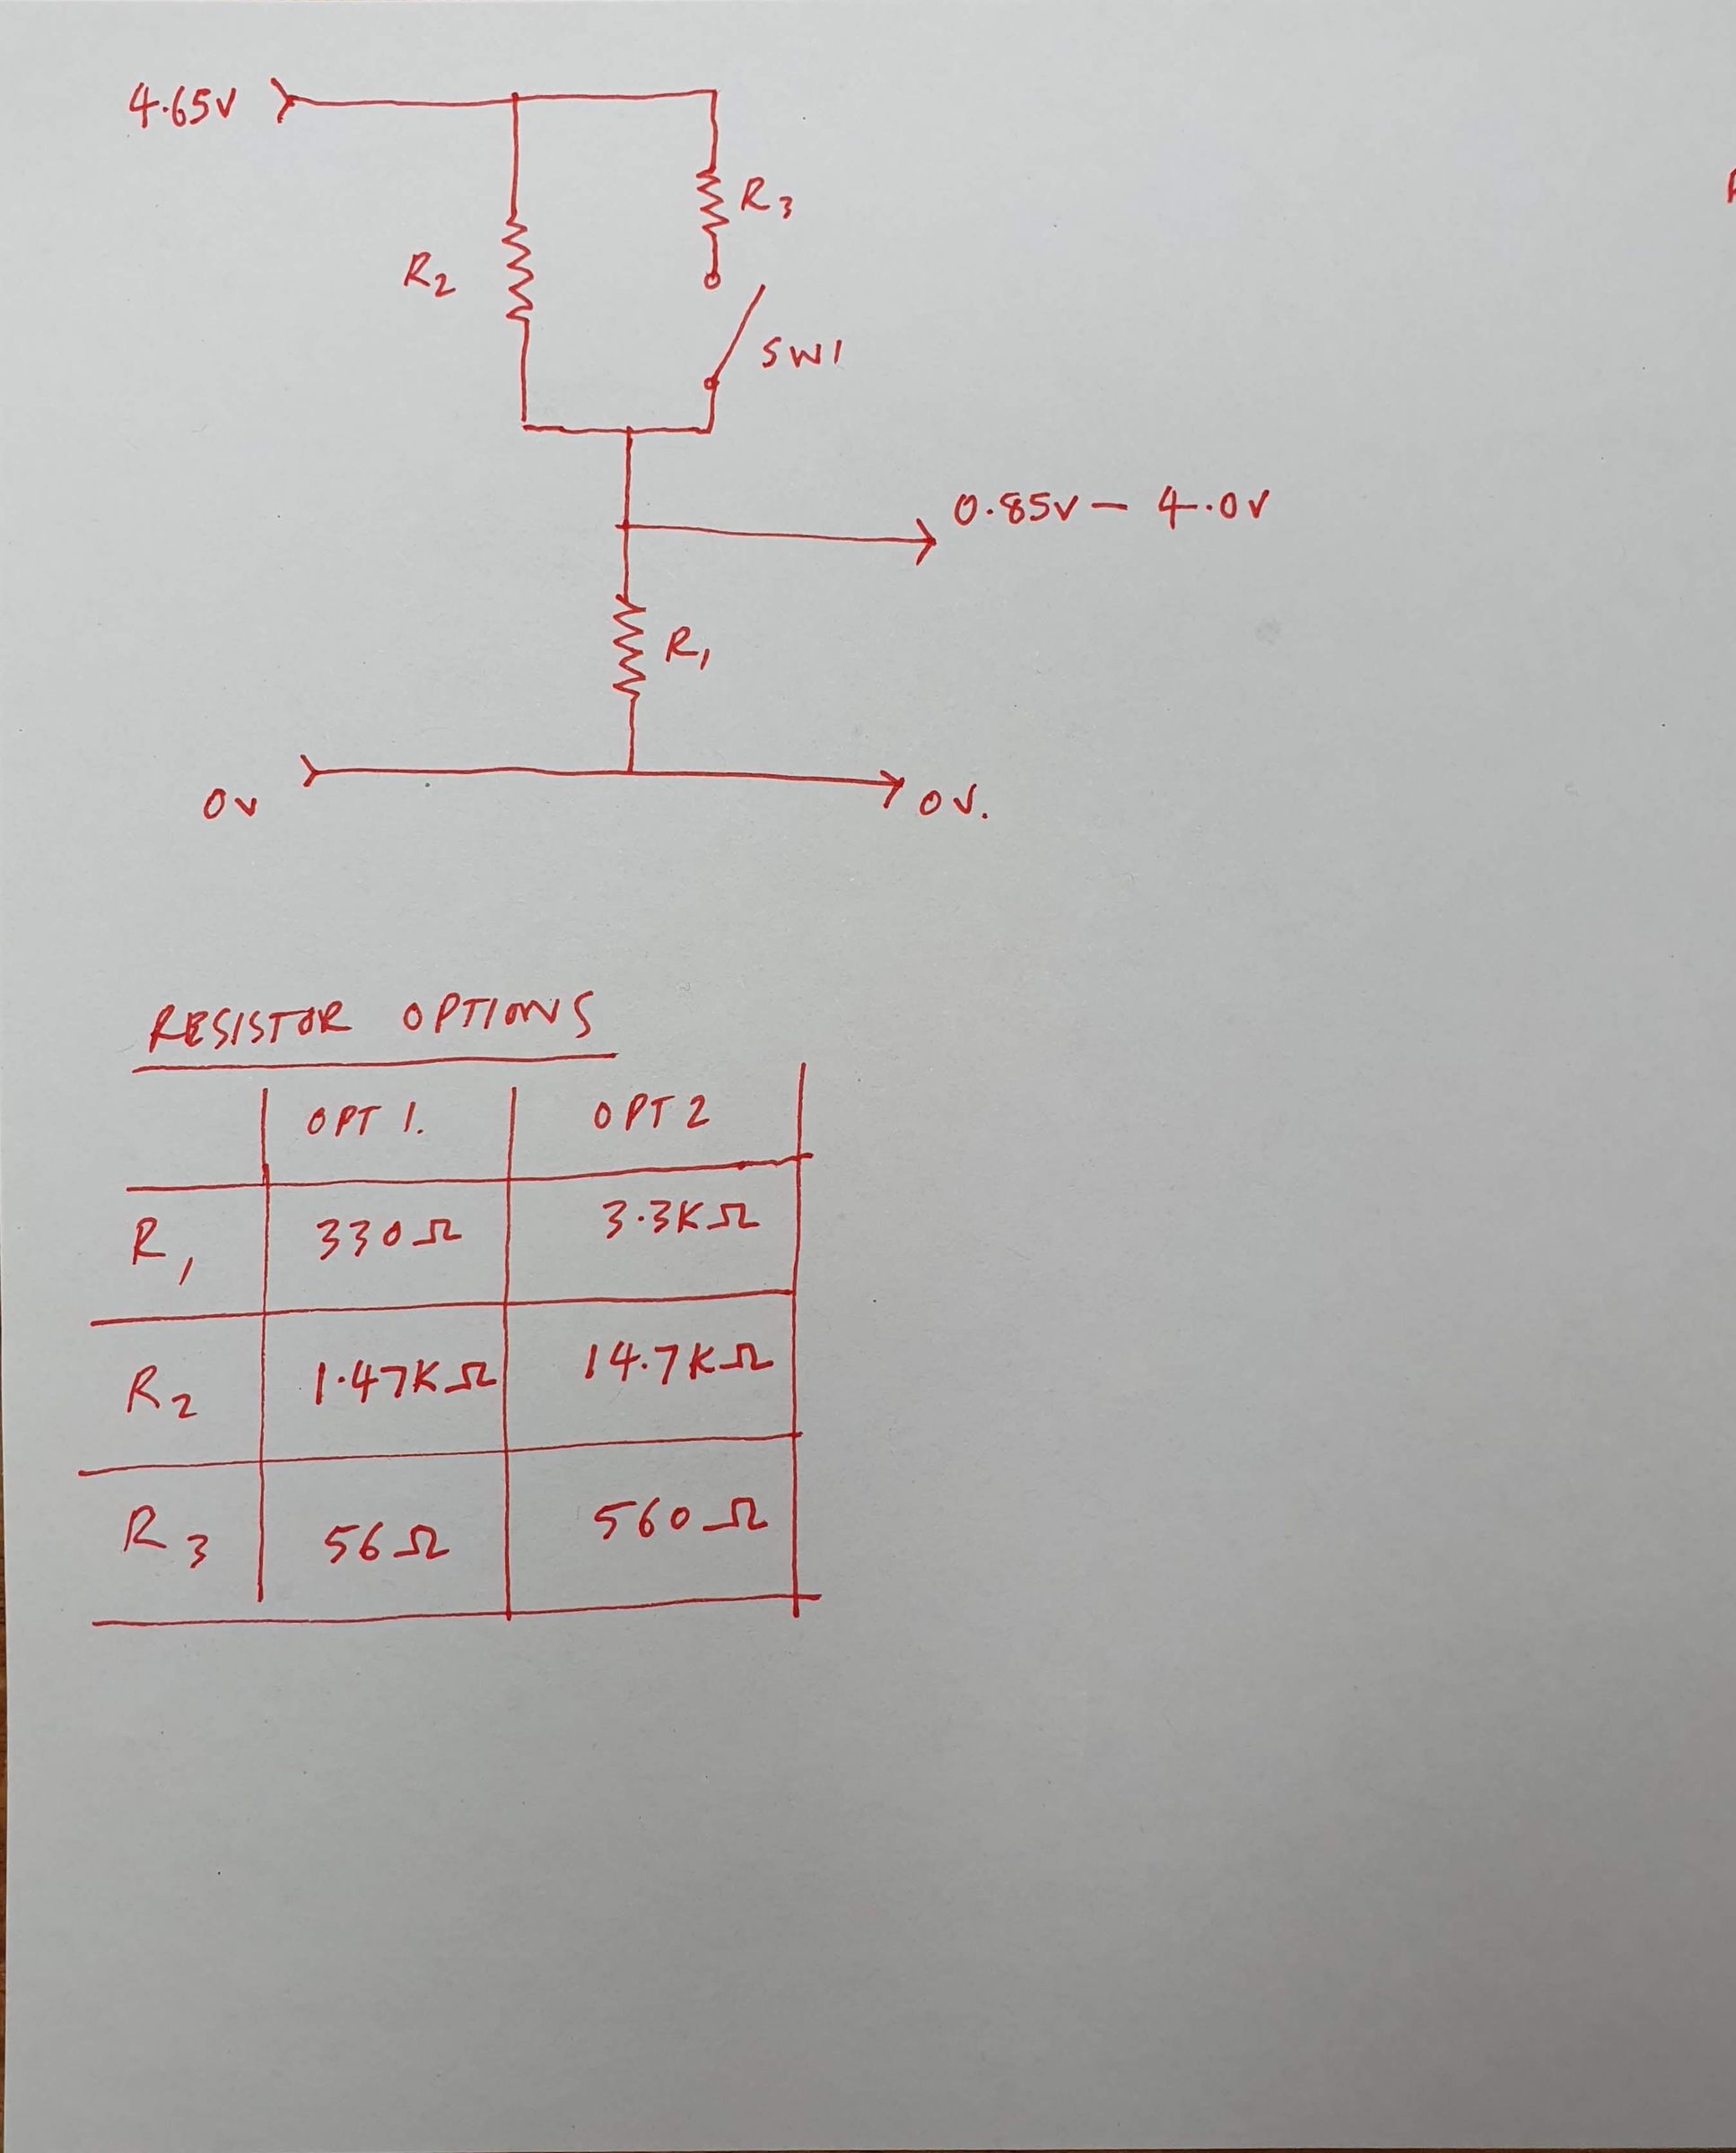 4.65V
R3
R2
SW1
0.85V – 4.0V
R1
0V
0V.
RESISTOR OPTIONS
OPT 1. OPT 2
R1 330Ω 3.3KΩ
R2 1.47KΩ 14.7KΩ
R3 56Ω 560Ω